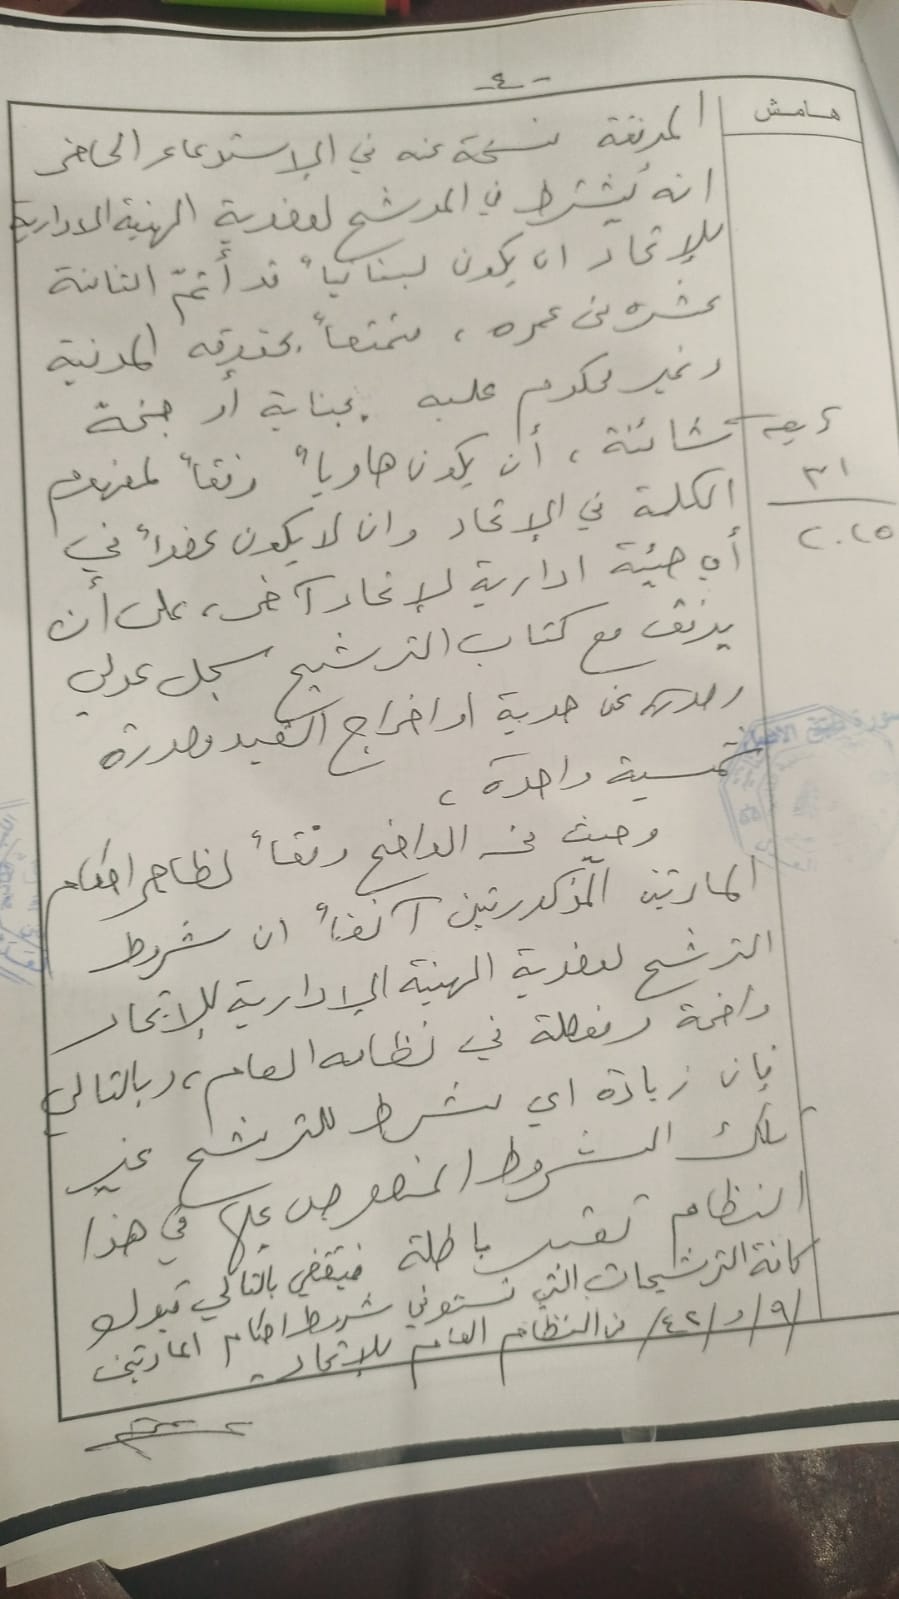 - ٤ -
هامش
المرفقة نسخة عنه في الاستدعاء الحاضر
انه يُشترط في المرشح لعضوية الهيئة الادارية
للاتحاد ان يكون لبنانياً قد أتمّ الثامنة
عشرة من عمره، متمتعاً بحقوقه المدنية
وغير محكوم عليه بجناية أو جنحة
شائنة، أن يكون هاوياً وفقاً لمفهوم
الكلمة في الإتحاد وان لا يكون عضواً في
أي هيئة ادارية لإتحاد آخر، على أن
يرفق مع كتاب الترشيح سجل عدلي
وصورة عن هوية او اخراج القيد وصورة
شمسية واحدة،
وحيث من الواضح وفقاً لظاهر احكام
المادتين المذكورتين آنفاً ان شروط
الترشح لعضوية الهيئة الإدارية للاتحاد
واضحة ومفصلة في نظامه العام، وبالتالي
فإن زيادة اي شرط للترشح غير
تلك الشروط المنصوص عليها في هذا
النظام تعتبر باطلة فيقتضي بالتالي قبول
كافة الترشيحات التي تستوفي شروط احكام المادتين
/٩/ و /٤٢/ من النظام العام للاتحاد.
٣١
٢٠٢٥